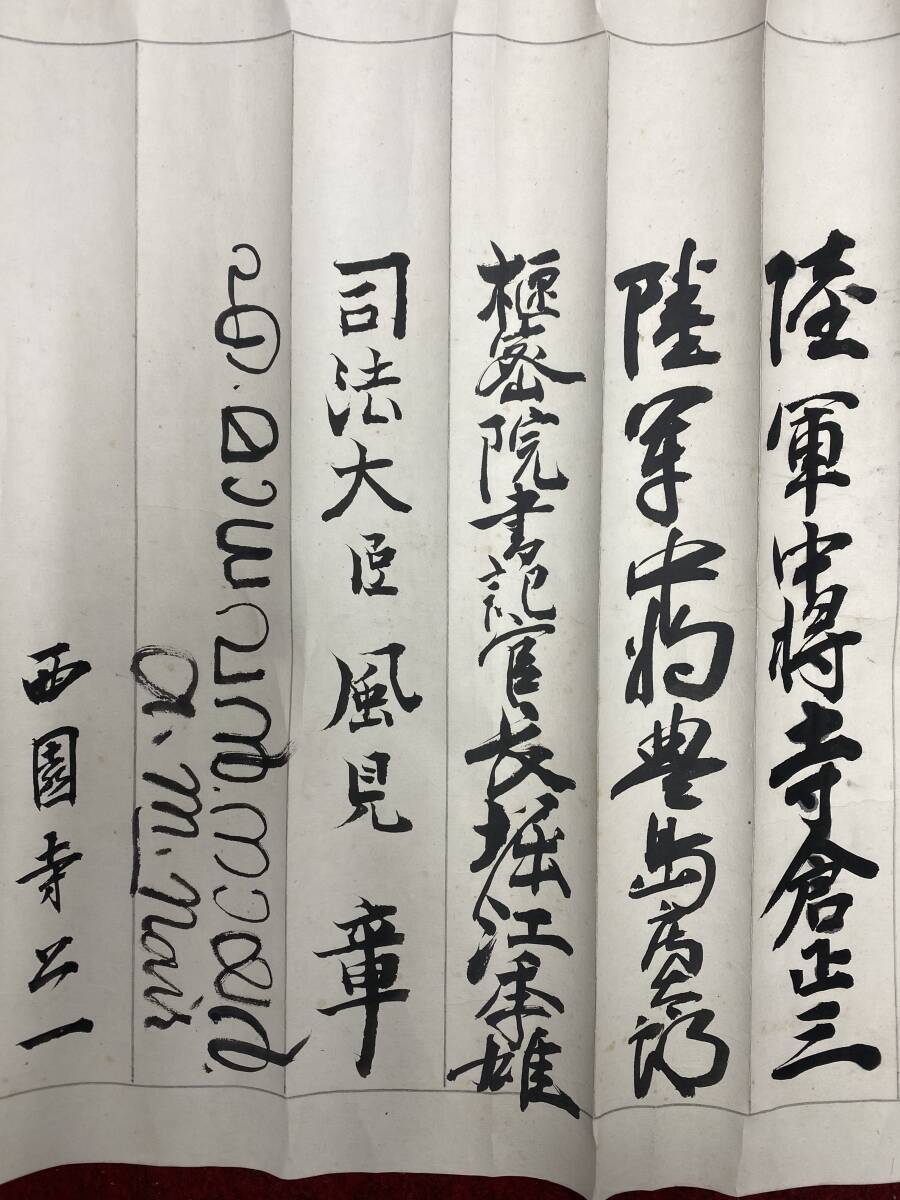 陸軍中将寺倉正三
陸軍中将豊嶋房太郎
枢密院書記官長堀江季雄
司法大臣 風見 章
A. M. Nair
西園寺公一